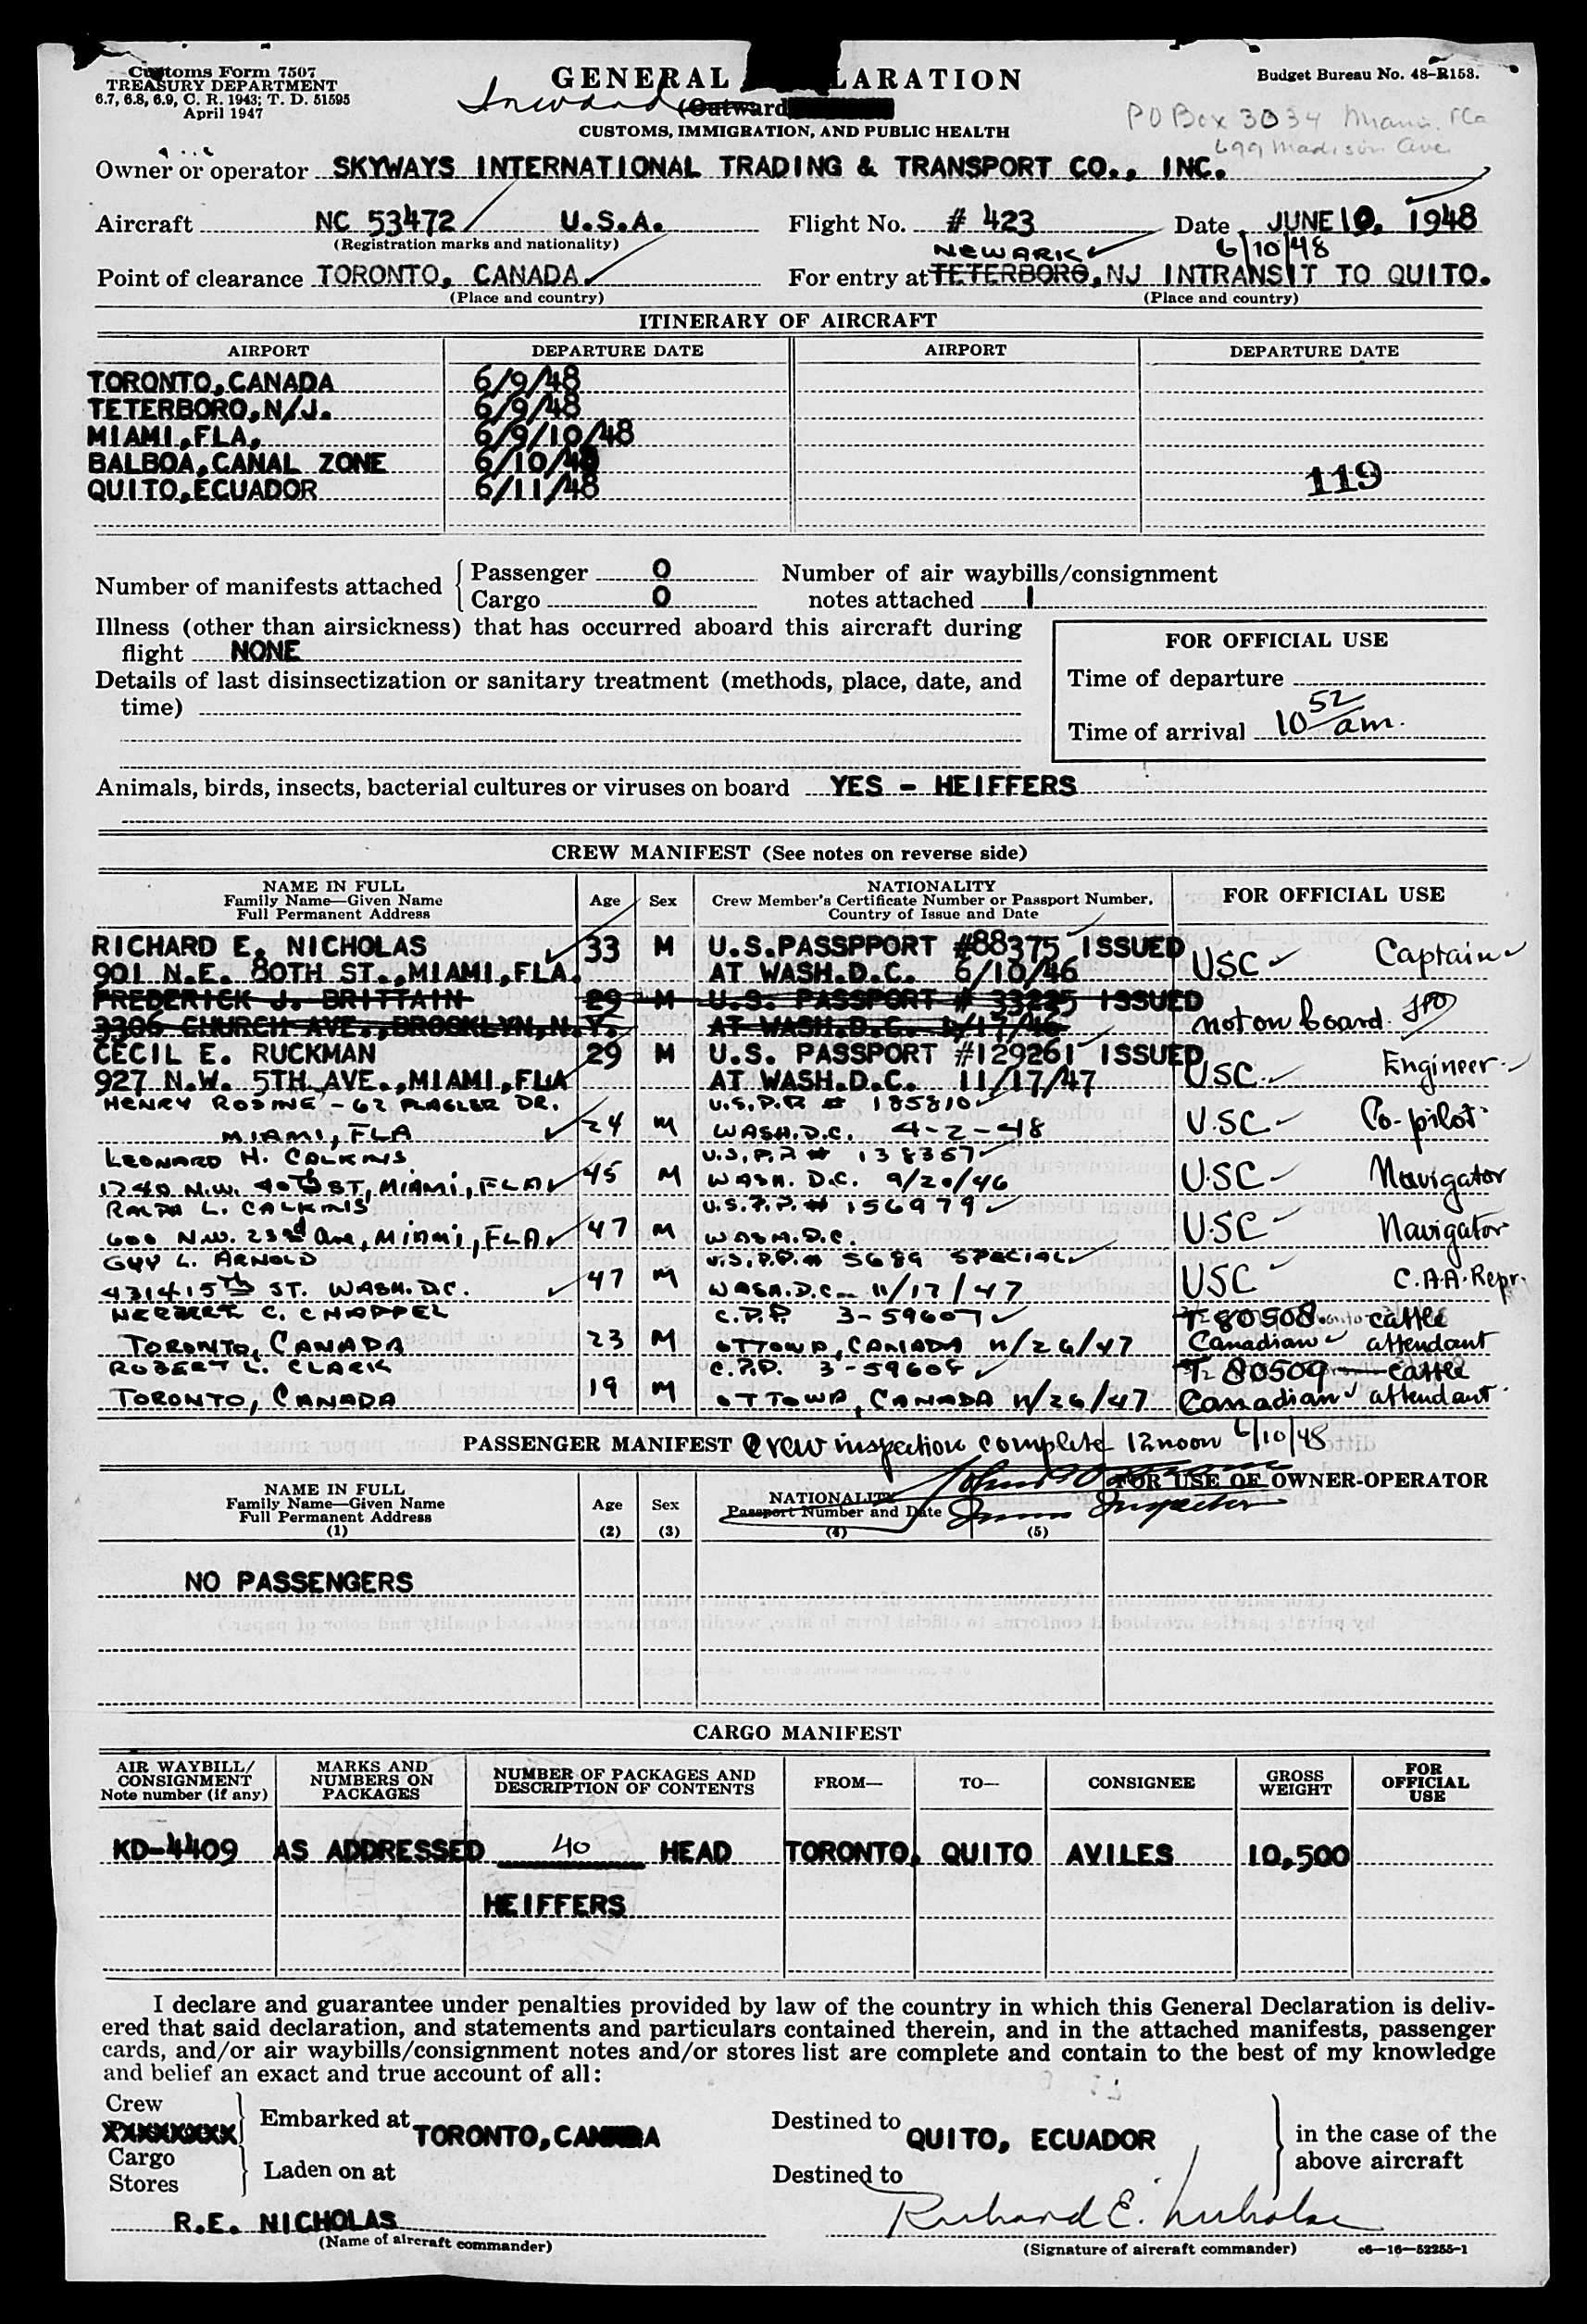 Customs Form 7507
TREASURY DEPARTMENT
6.7, 6.8, 6.9, C. R. 1943; T. D. 51595
April 1947
GENERAL LARATION
Inward (Outward
CUSTOMS, IMMIGRATION, AND PUBLIC HEALTH
Budget Bureau No. 48-R153.
PO Box 3034 Miami, Fla
699 Madison Ave
Owner or operator SKYWAYS INTERNATIONAL TRADING & TRANSPORT CO., INC.
Aircraft NC 53472 U.S.A. Flight No. # 423 Date JUNE 10, 1948
(Registration marks and nationality)
NEWARK 6/10/48
Point of clearance TORONTO, CANADA For entry at TETERBORO, NJ INTRANSIT TO QUITO.
(Place and country) (Place and country)
ITINERARY OF AIRCRAFT
AIRPORT DEPARTURE DATE AIRPORT DEPARTURE DATE
TORONTO, CANADA 6/9/48
TETERBORO, N/J. 6/9/48
MIAMI, FLA, 6/9/10/48
BALBOA, CANAL ZONE 6/10/48
QUITO, ECUADOR 6/11/48
119
Number of manifests attached Passenger 0 Cargo 0
Number of air waybills/consignment
notes attached 1
Illness (other than airsickness) that has occurred aboard this aircraft during
flight NONE
Details of last disinsectization or sanitary treatment (methods, place, date, and
time)
FOR OFFICIAL USE
Time of departure
Time of arrival 10 52 am.
Animals, birds, insects, bacterial cultures or viruses on board YES - HEIFFERS
CREW MANIFEST (See notes on reverse side)
NAME IN FULL
Family Name—Given Name
Full Permanent Address
Age Sex
NATIONALITY
Crew Member's Certificate Number or Passport Number,
Country of Issue and Date
FOR OFFICIAL USE
RICHARD E. NICHOLAS 33 M U.S.PASSPPORT #88375 ISSUED
901 N.E. 80TH ST., MIAMI, FLA. AT WASH.D.C. 6/10/46 USC Captain
FREDERICK J. BRITTAIN 29 M U.S. PASSPORT # 33225 ISSUED
3306 CHURCH AVE., BROOKLYN, N.Y. AT WASH.D.C. /17/46 not on board
CECIL E. RUCKMAN 29 M U.S. PASSPORT #129261 ISSUED
927 N.W. 5TH AVE., MIAMI, FLA AT WASH.D.C. 11/17/47 USC Engineer
HENRY ROSING - 62 FLAGLER DR. U.S.P.P. # 185810
MIAMI, FLA 24 M WASH.D.C. 4-2-48 USC Co-pilot
LEONARD H. CALKINS U.S.P.P # 138357
1740 N.W. 40TH ST, MIAMI, FLA 45 M WASH. D.C. 9/20/46 USC Navigator
RALPH L. CALKINS U.S.P.P. # 156979
600 N.W. 23rd Ave, MIAMI, FLA. 47 M WASH.D.C. USC Navigator
GUY L. ARNOLD U.S.P.P.# 5689 SPECIAL
4314 15th ST. WASH. DC. 47 M WASH.D.C. 11/17/47 USC C.A.A. Repr.
HERBERT C. CHAPPEL C.P.P. 3-59607 T-80508 cattle
TORONTO, CANADA 23 M OTTOWA, CANADA 11/26/47 Canadian attendant
ROBERT L. CLARK C.P.P. 3-59608 T-80509 cattle
TORONTO, CANADA 19 M OTTOWA, CANADA 11/26/47 Canadian attendant
PASSENGER MANIFEST Crew inspection complete 12 noon 6/10/48
NAME IN FULL
Family Name—Given Name
Full Permanent Address
(1)
Age (2) Sex (3)
NATIONALITY
Passport Number and Date
(4) (5)
John Inspector
FOR USE OF OWNER-OPERATOR
NO PASSENGERS
CARGO MANIFEST
AIR WAYBILL/
CONSIGNMENT
Note number (if any)
MARKS AND
NUMBERS ON
PACKAGES
NUMBER OF PACKAGES AND
DESCRIPTION OF CONTENTS
FROM— TO— CONSIGNEE
GROSS
WEIGHT
FOR
OFFICIAL
USE
KD-4409 AS ADDRESSED 40 HEAD TORONTO, QUITO AVILES 10,500
HEIFFERS
I declare and guarantee under penalties provided by law of the country in which this General Declaration is deliv-
ered that said declaration, and statements and particulars contained therein, and in the attached manifests, passenger
cards, and/or air waybills/consignment notes and/or stores list are complete and contain to the best of my knowledge
and belief an exact and true account of all:
Crew
XXXXXXXX Embarked at TORONTO, CANADA Destined to QUITO, ECUADOR in the case of the
Cargo above aircraft
Stores Laden on at Destined to
R.E. NICHOLAS Richard E. Nicholas
(Name of aircraft commander) (Signature of aircraft commander) c6—16—52255-1